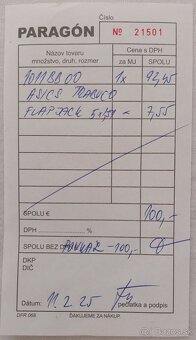 Číslo
PARAGÓN
№ 21501
Názov tovaru
množstvo, druh, rozmer
Cena s DPH
za MJ
SPOLU
1011B800 1x 92,45
ASICS TRABUCO
FLAPJACK 5x1,51 - 7,55
SPOLU € 100,-
DPH %
SPOLU BEZ D POUKAZ -100,-
DKP
DIČ
Dátum: 11.2.25
pečiatka a podpis
DFR 068
ĎAKUJEME ZA NÁKUP.